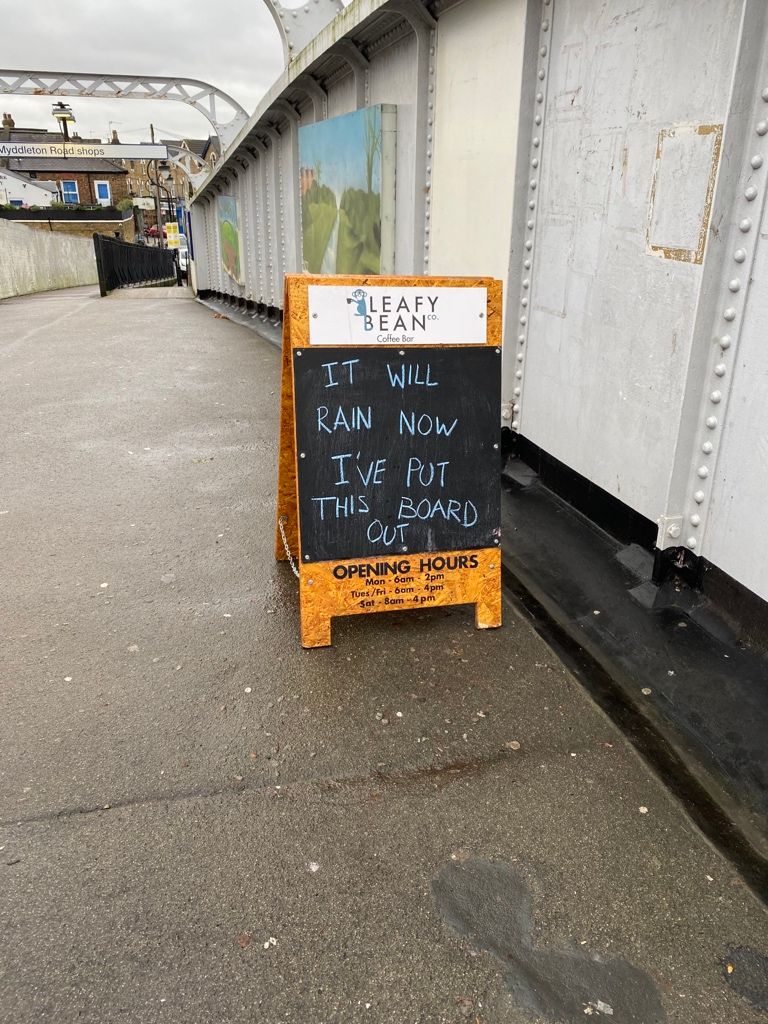 Myddleton Road shops
LEAFY
BEAN CO.
Coffee Bar
IT WILL
RAIN NOW
I'VE PUT
THIS BOARD
OUT
OPENING HOURS
Mon - 6am - 2pm
Tues/Fri - 6am - 4pm
Sat - 8am - 4pm